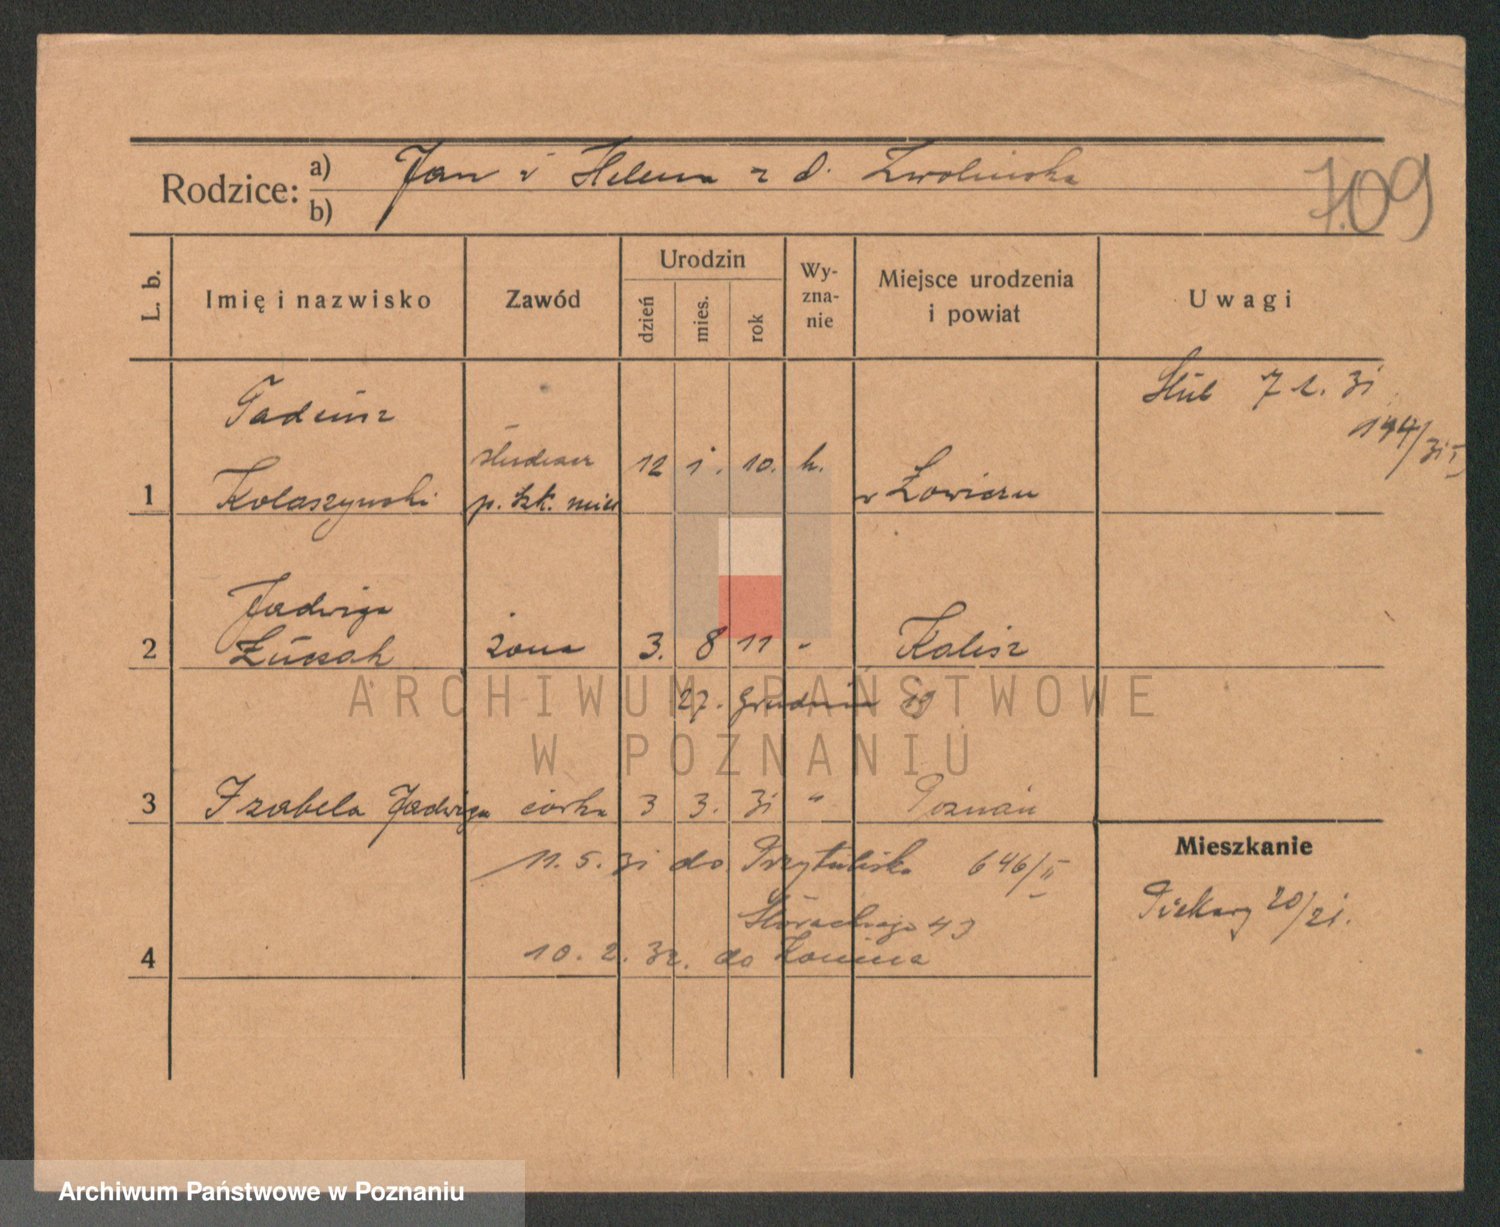 Rodzice: a) Jan i Helena z d. Zwolińska
b)
709
L. b. Imię i nazwisko Zawód Urodzin dzień mies. rok Wy-zna-nie Miejsce urodzenia i powiat Uwagi
Ślub 7 2. 31
Tadeusz
student 12 1. 10. k.
1 Kolaszynski p. szk. w Łowiczu
Jadwiga
2 Łuczak żona 3. 8 11 " Kalisz
27. grudnia 19
3 Izabela Jadwiga córka 3 3. 31 " Poznań
Mieszkanie
11. 5. 31 do Przytuliska 646/II
Piekary 20/21.
43
4 10. 2. 32. do Konina
ARCHIWUM PAŃSTWOWE
W POZNANIU
Archiwum Państwowe w Poznaniu